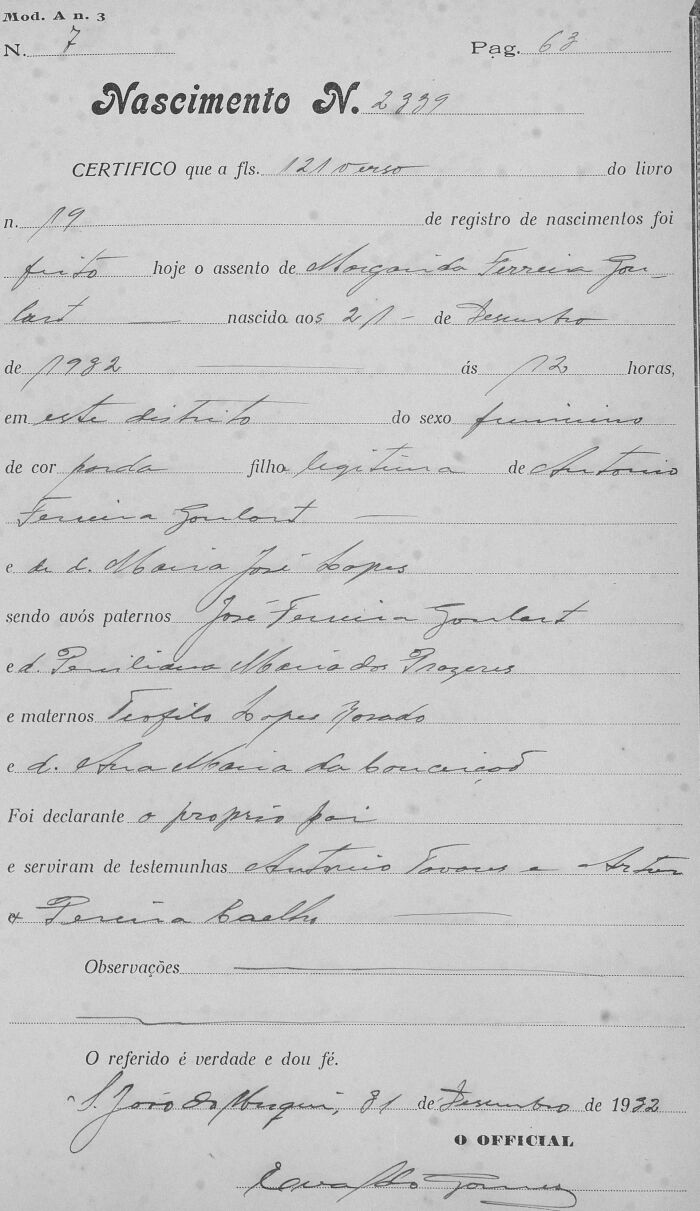 Mod. A n. 3
N. 7 Pag. 63
Nascimento N. 2339
CERTIFICO que a fls. 121 verso do livro
n. 19 de registro de nascimentos foi
feito hoje o assento de Margarida Ferreira Gou-
lart nascido aos 21 - de Desembro
de 1932 ás 12 horas,
em este distrito do sexo feminino
de cor parda filha legitima de Antonio
Ferreira Goulart
e de d. Maria José Lopes
sendo avós paternos José Ferreira Goulart
e d. Maria dos Prazeres
e maternos Teofilo Lopes
e d. Ana Maria da Conceição
Foi declarante o proprio pai
e serviram de testemunhas Antonio Tavares e Artur
Pereira Coelho
Observações
O referido é verdade e dou fé.
S. João do 31 de Desembro de 1932
O OFFICIAL
Gomes